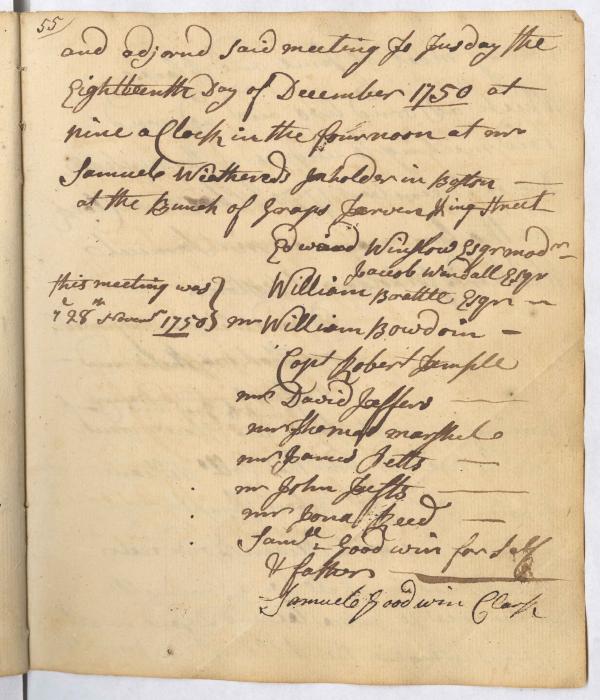 55
and adjornd said meeting To Tusday the
Eighteenth Day of December 1750 at
nine a Clock in the fournoon at mr
Samuele Weatherds Inholder in Boston —
at the Bunch of Graps Tavern King Street
Edward Winslow Esqr modr
Jacob Wendall Esqr
William Brattle Esqr
this meeting was
ye 28th Novemr 1750
mr William Bowdoin —
Capt Robert Temple
mr David Jeffers —
mr Thomas marshel
mr James Petts —
mr John Tufts —
mr Jona Reed —
Samll Goodwin for Self
& father
Samuele Goodwin Clark